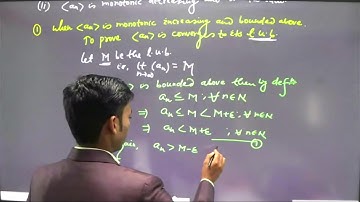 (ii) <aₙ> is monotonic decreasing and
① When <aₙ> is monotonic increasing and bounded above.
To prove <aₙ> is converges to its l.u.b.
Let M be the l.u.b.
i.e., lt (aₙ) = M
n→∞
is bounded above then by defn
aₙ ≤ M ; ∀ n∈N
⇒ aₙ ≤ M < M+ε ; ∀ n∈N
⇒ aₙ < M+ε ; ∀ n∈N
①
aₙ > M-ε